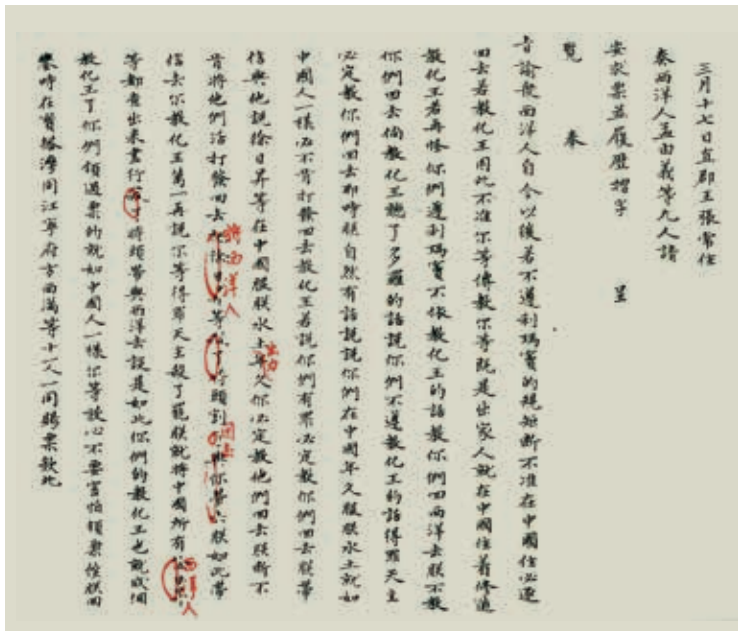 三月十七日直郡王張常住
奏西洋人孟由義等九人請
安求票並履歷摺子 呈
覽 奉
旨諭衆西洋人自今以後若不遵利瑪竇的規矩斷不准在中國住必逐
回去若教化王因此不准尔等傳教尔等既是出家人就在中國住着修道
教化王若再怪你們遵利瑪竇不依教化王的話教你們回西洋去朕不教
你們回去倘教化王聽了多羅的話說你們不遵教化王的話得罪天主
必定教你們回去那時朕自然有話說說你們在中國年久服朕水土就如
中國人一樣必不肯打發回去教化王若說你們有罪必定教你們回去朕帶
信與他說徐日昇等在中國服朕水土出力年久你必定教他們回去朕斷不
肯將他們活打發回去將西洋人等頭割回去與你等朕如此帶
信去尔教化王萬一再說尔等得罪天主殺了罷朕就將中國所有西洋人
等都查出來盡行將頭帶與西洋去設是如此你們的教化王也就成個
教化王了你們領過票的就如中國人一樣尔等放心不要害怕領票俟朕回
鑾時在寶塔灣同江寧府方西滿等十一人一同賜票欽此